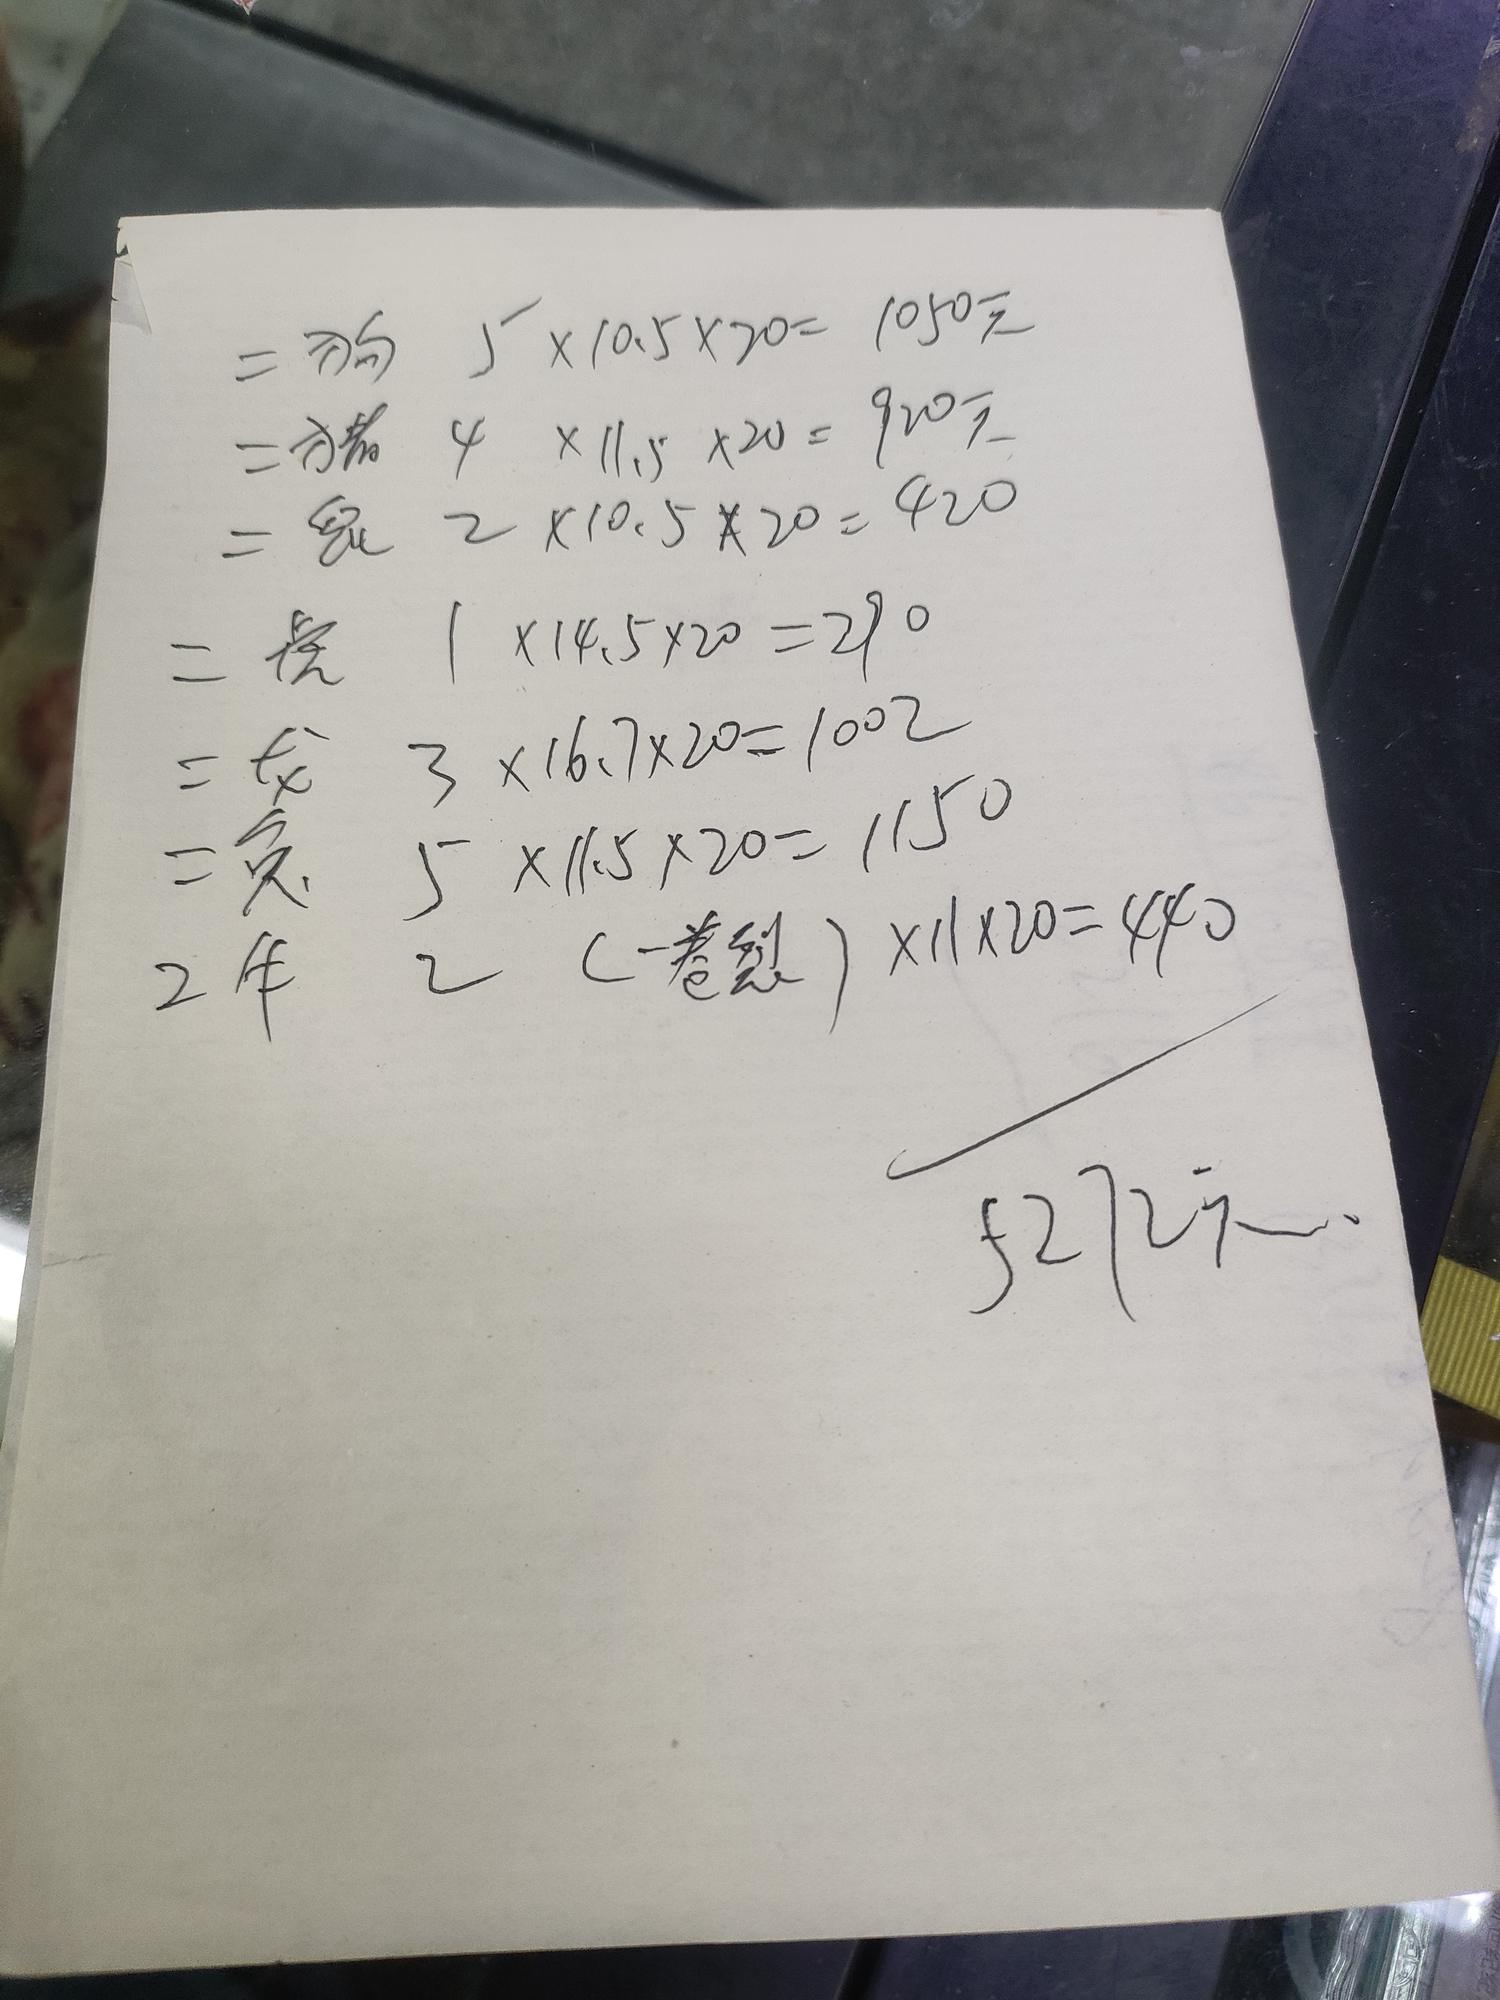 二狗 5×10.5×20=1050元
二猪 4 ×11.5×20=920元
二鼠 2×10.5×20=420
二虎 1×14.5×20=290
二龙 3×16.7×20=1002
二兔 5×11.5×20=1150
2牛 2(一卷裂)×11×20=440
5272元.